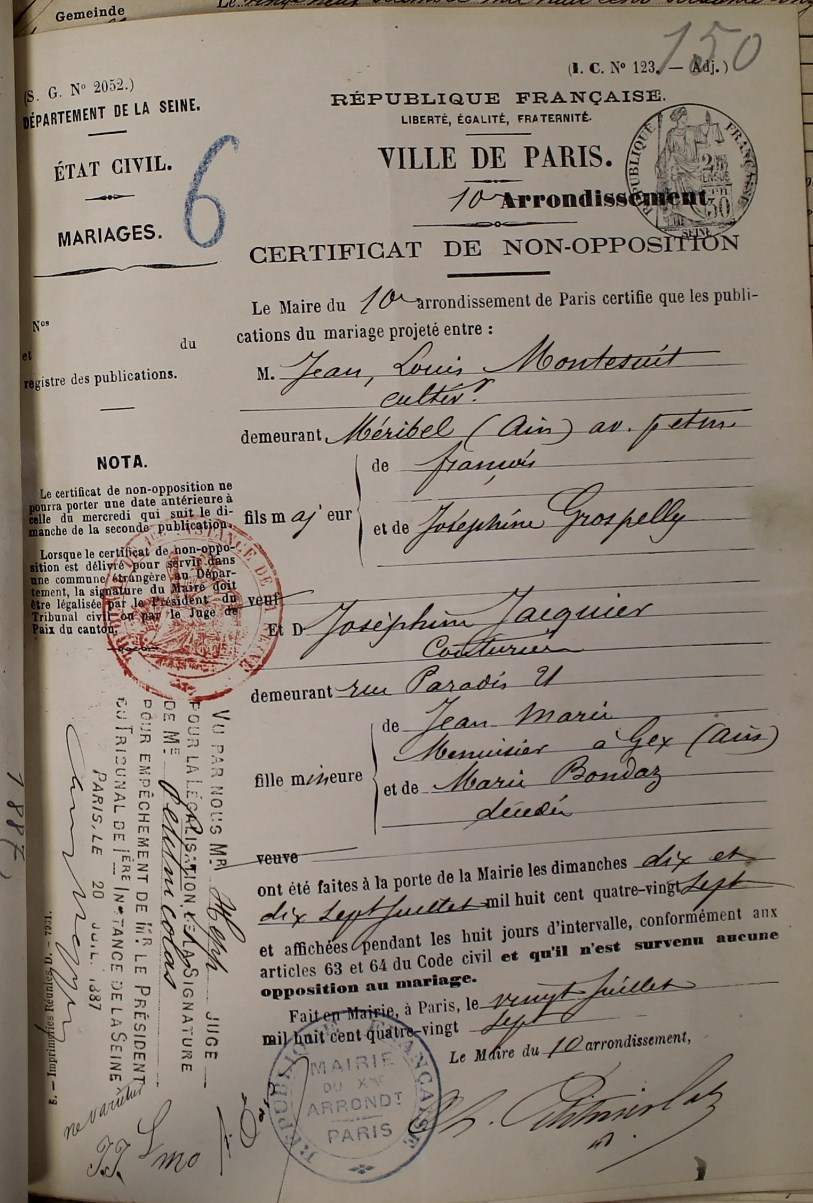 Gemeinde
150
(S. G. N° 2052.)
DÉPARTEMENT DE LA SEINE.
ÉTAT CIVIL.
MARIAGES.
6
Nos
et
du
registre des publications.
NOTA.
Le certificat de non-opposition ne
pourra porter une date antérieure à
celle du mercredi qui suit le di-
manche de la seconde publication.
Lorsque le certificat de non-oppo-
sition est délivré pour servir dans
une commune étrangère au Dépar-
tement, la signature du Maire doit
être légalisée par le Président du
Tribunal civil ou par le Juge de
Paix du canton.
(I. C. N° 123. — Adj.)
RÉPUBLIQUE FRANÇAISE.
LIBERTÉ, ÉGALITÉ, FRATERNITÉ.
VILLE DE PARIS.
10e Arrondissement
RÉPUBLIQUE FRANÇAISE
SEINE
CERTIFICAT DE NON-OPPOSITION
Le Maire du 10e arrondissement de Paris certifie que les publi-
cations du mariage projeté entre :
M. Jean, Louis Montesuit
cultivr.
demeurant Méribel (Ain) av.
fils maj eur
de françois
et de Joséphine Grospelly
veuf
Et D Joséphine Jacquier
Couturière
demeurant rue Paradis 21
fille mineure
de Jean Marie
Menuisier à Gex (Ain)
et de Marie Bondaz
décédée
veuve
ont été faites à la porte de la Mairie les dimanches dix et
dix sept Juillet mil huit cent quatre-vingt sept
et affichées pendant les huit jours d'intervalle, conformément aux
articles 63 et 64 du Code civil et qu'il n'est survenu aucune
opposition au mariage.
Fait en Mairie, à Paris, le vingt Juillet
mil huit cent quatre-vingt sept
Le Maire du 10 arrondissement,
RÉPUBLIQUE FRANÇAISE
MAIRIE
DU Xme
ARRONDT
PARIS
VU PAR NOUS MR JUGE
POUR LA LÉGALISATION DE LA SIGNATURE
DE MR
POUR EMPÊCHEMENT DE MR LE PRÉSIDENT
DU TRIBUNAL DE 1ÈRE INSTANCE DE LA SEINE
PARIS, LE 20 JUIL. 1887
ne varietur
1887